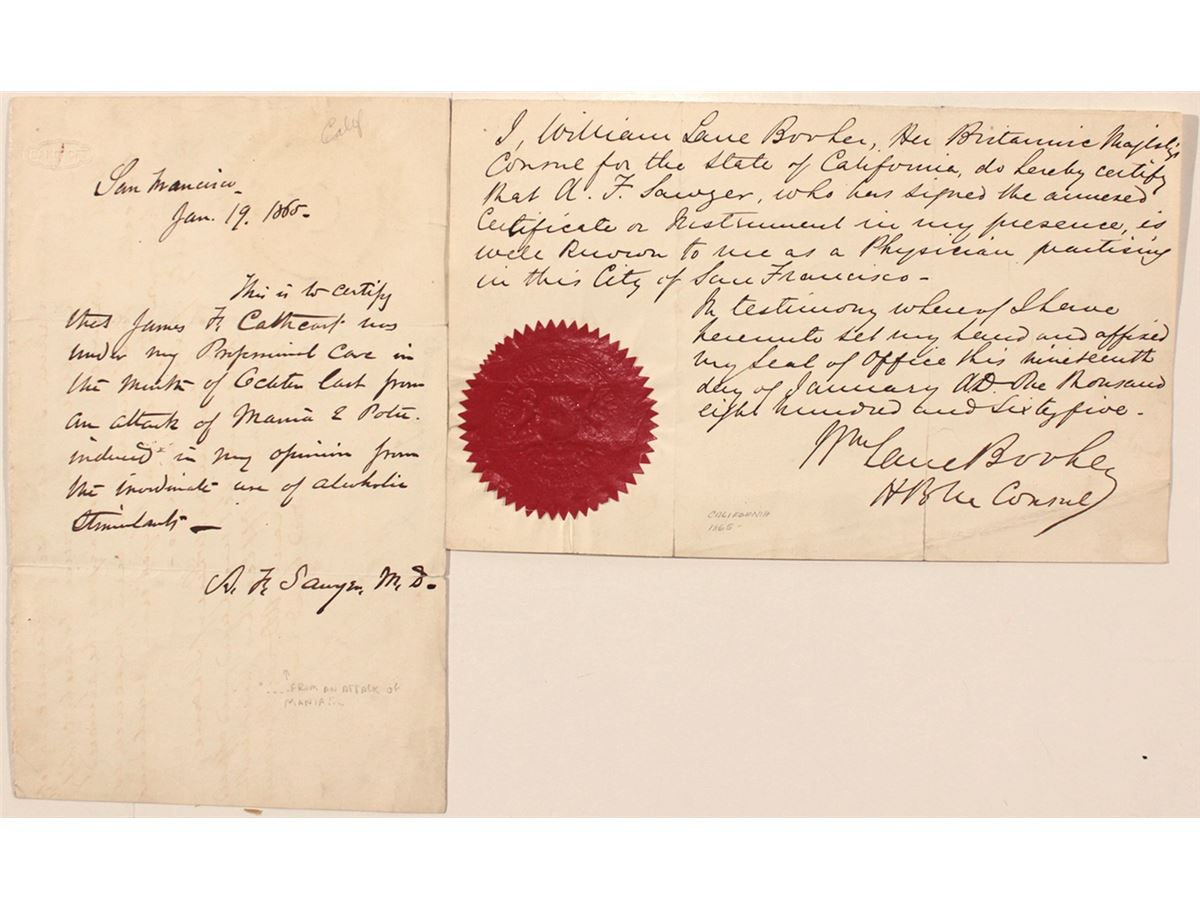 Calif
San Francisco
Jan. 19. 1865.
This is to certify
that James F. Cathcart was
under my Professional Care in
the month of October last from
an attack of Mania & Potu.
induced in my opinion from
the inordinate use of alcoholic
Stimulants —
A. F. Sawyer, M. D.
"....FROM AN ATTACK OF
MANIA...
I, William Lane Booker, Her Britannic Majesty's
Consul for the State of California, do hereby certify
that A. F. Sawyer, who has signed the annexed
Certificate or Instrument in my presence, is
well known to me as a Physician practising
in this City of San Francisco -
In testimony whereof I have
hereunto set my hand and affixed
my Seal of Office this nineteenth
day of January A.D. One Thousand
eight hundred and Sixty five -
Wm Lane Booker
H B M Consul
CALIFORNIA
1865 -